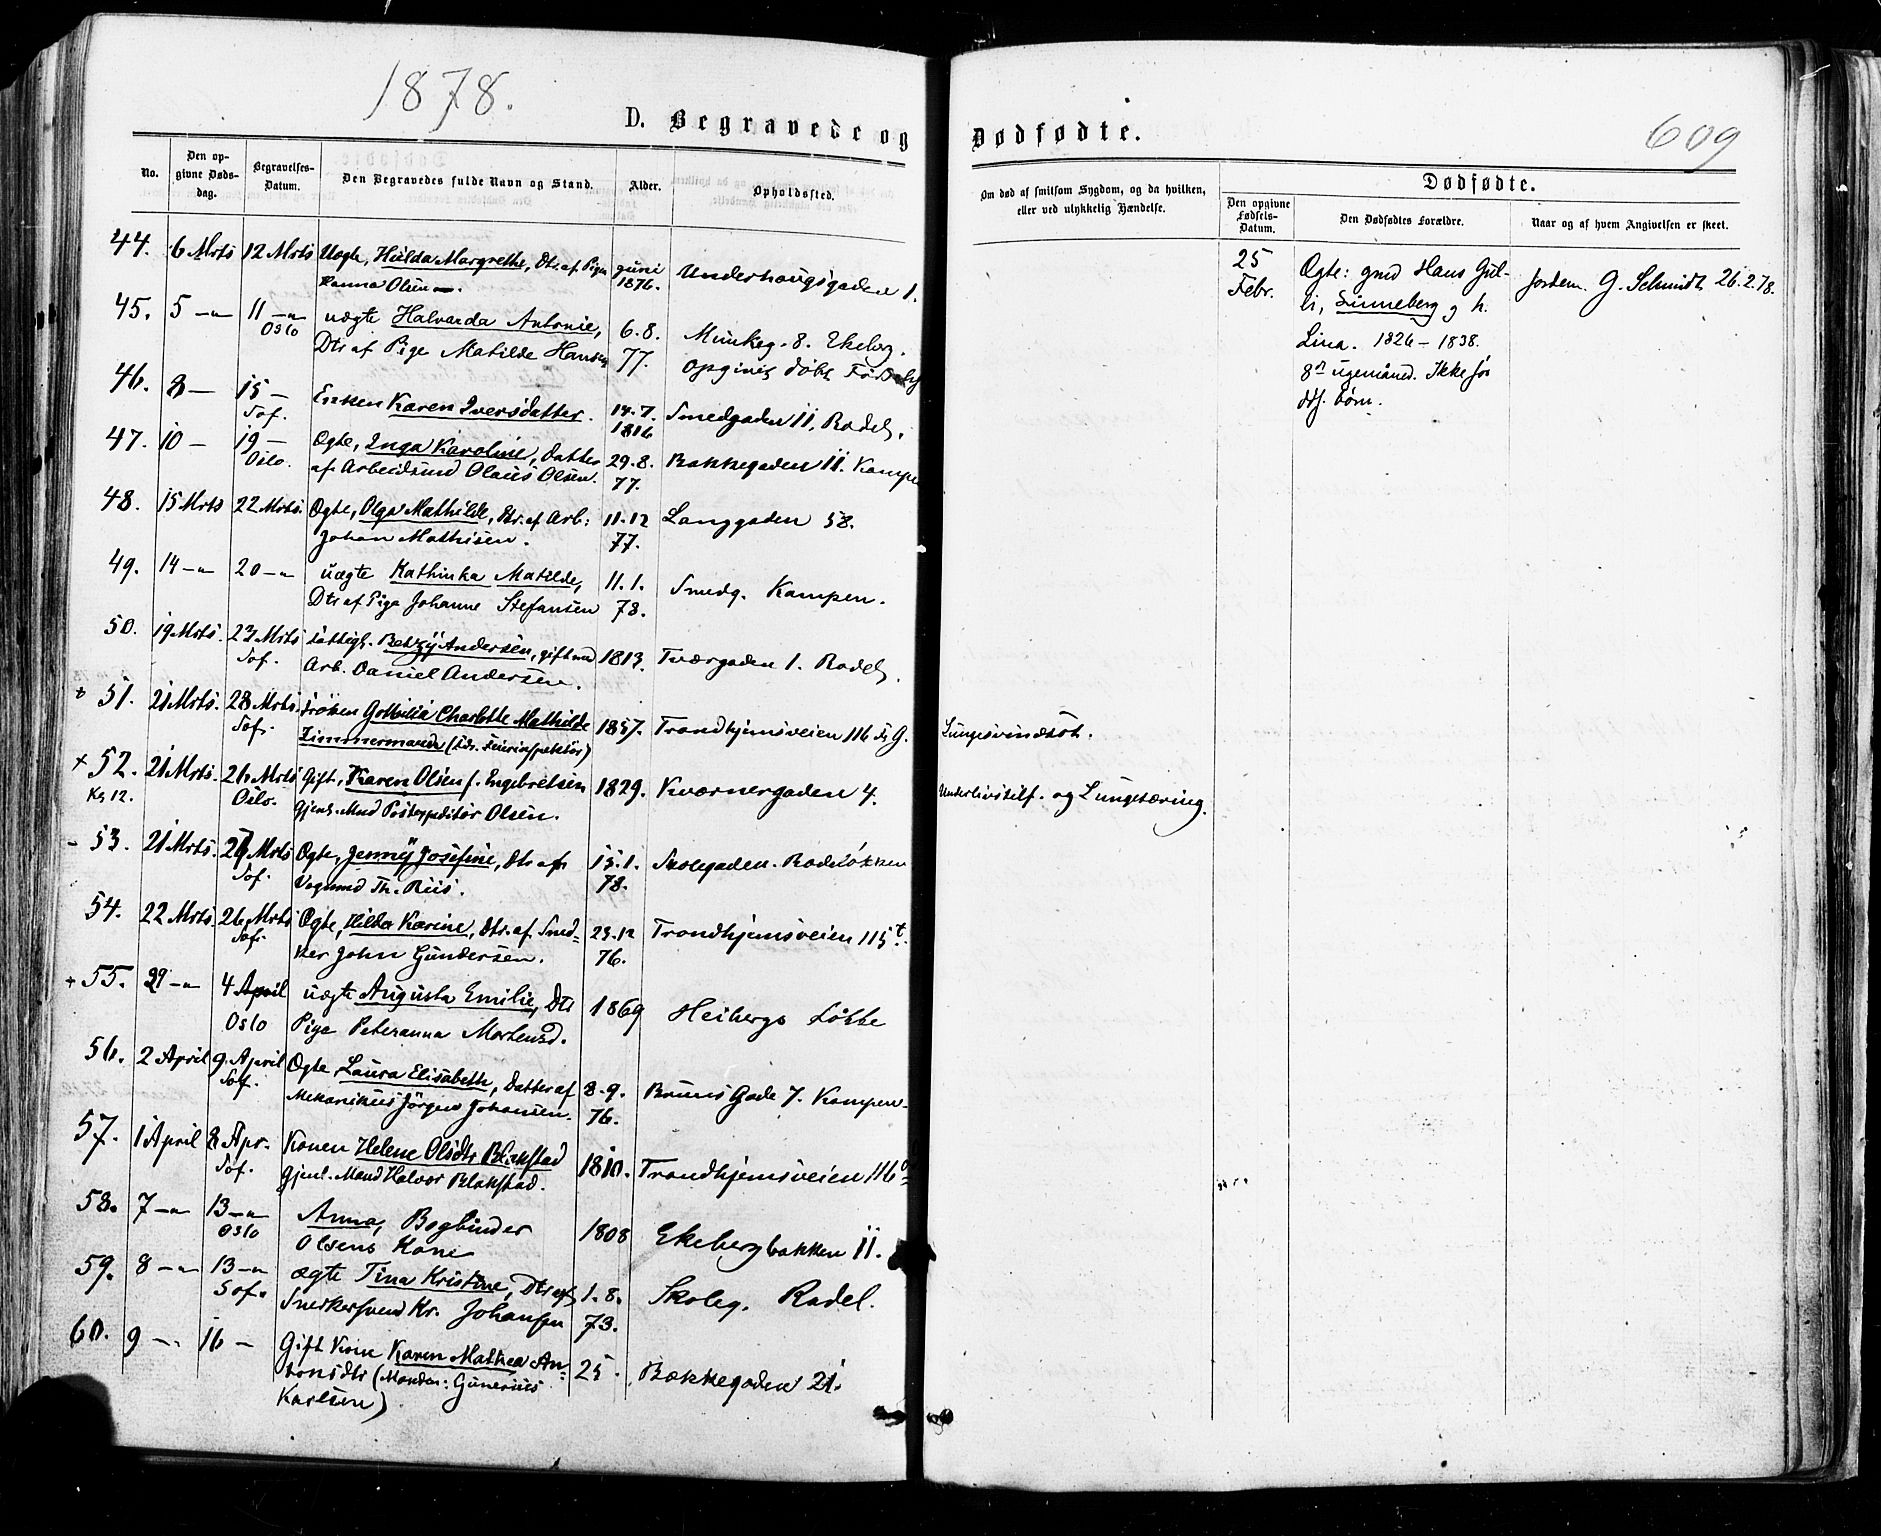 1878.
D. Begravede og
No.
Den opgivne Dødsdag.
Begravelses-Datum.
Den Begravedes fulde Navn og Stand.
Alder.
Opholdssted.
44. 6 Mrts 12 Mrts Uægte, Hulda Margrethe, Dtr. af Pige Juni Underhaugsgaden 1.
Hanna Olsen. 1876.
45. 5 – 11 – uægte Halvarda Antonie, 6. 8. Munkeg. 8. Ekeberg.
Oslo Dtr af Pige Matilde Hansen 77. opgivet døbt
46. 8 – 15 – Enken Karen Iversdatter. 14. 7. Smedgaden 11, Rodel.
Sof. 1816
47. 10 – 19 – Ægte, Inga Karoline, Datter 29. 8. Bakkegaden 11. Kampen
Oslo. af Arbeidsmd Olaus Olsen. 77.
48. 15 Mrts 22 Mrts. Ægte, Olga Mathilde, Dtr. af Arb: 11. 12 Langgaden 58.
Johan Mathisen. 77.
49. 14 – 20 – uægte Kathinka Matilde, 11. 1. Smedg. Kampen.
Dtr af Pige Johanne Stefansen 78.
50. 19 Mrts. 23 Mrts fattigl. Betzÿ Andersen, gift med 1813. Tværgaden 1. Rodel.
Sof. Arb. Daniel Andersen.
+ 51. 21 Mrts. 28 Mrts. Frøken Charlotte Mathilde 1857. Trondhjemsveien 116
Sof. Zimmermann
+ 52. 21 Mrts. 26 Mrts Gift, Karen Olsen f. Engebretsen 1829. Kværnergaden 4.
Kg 12. Oslo. Gjenl. Mand Postexpeditør Olsen.
- 53. 21 Mrts. 27 Mrts Ægte, Jennÿ Josefine, Dtr af 15. 1. Skolegaden. Rodeløkken
Sof. Vognmd Th. Riis. 78.
54. 22 Mrts. 26 Mrts Ægte, Hilda Karine, Dtr. af Sned- 23. 12 Trondhjemsveien 115
Sof. ker John Gundersen. 76.
+ 55. 29 – 4 April uægte Augusta Emilie, Dtr 1869 Heibergs Løkke
Oslo Pige Peteranna Mortensd.
56. 2 April 9. April Ægte Laura Elisabeth, Datter af 8. 9. Bruns Gade 7. Kampen
Sof. Mekanikus Jörgen Johansen. 76.
57. 1 April 8 Apr. Konen Helene Olsdtr Blakstad 1810. Trondhjemsveien 116
Sof. Gjenl. Mand Halvor Blakstad.
58. 7 – 13 – Anna, Bogbinder 1808 Ekebergbakken 11.
Oslo Olsens Kone
59. 8 – 13 – ægte Tina Kristine, Dtr af 1. 8. Skoleg. Rodel.
Sof. Snedkersvend Kr. Johansen 73.
60. 9 – 16 – Gift Kone Karen Mathea An- 25. Bakkegaden 21.
tonsdtr (Manden: Gunerius
Karlsen)
Dødfødte.
609
Om død af smitsom Sygdom, og da hvilken,
eller ved ulykkelig Hændelse.
Dødfødte.
Den opgivne Fødsels-Datum.
Den Dødfødtes Forældre.
Naar og af hvem Angivelsen er skeet.
25 Ægte: gmd Hans Gul- Jordem. G. Schmidt 26.2.78.
Febr. li, Linneberg og h.
Lina. 1826 – 1838.
8de ugemåned. Ikke før
df. børn.
Lungesvindsot.
Underlivstilf. og Lungetæring.